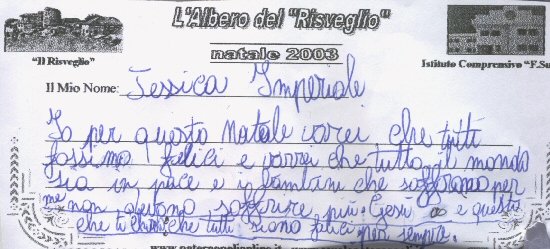 L'Albero del "Risveglio"
natale 2003
"Il Risveglio"
Istituto Comprensivo "F.Su
Il Mio Nome: Jessica Imperiale
Io per questo Natale vorei che tutti
fossimo felici e vorrei che tutto il mondo
sia in pace e i bambini che soffrono per
me non devono soffrire più. Gesù e questo
che ti chiedo che tutti siano felici per sempre.